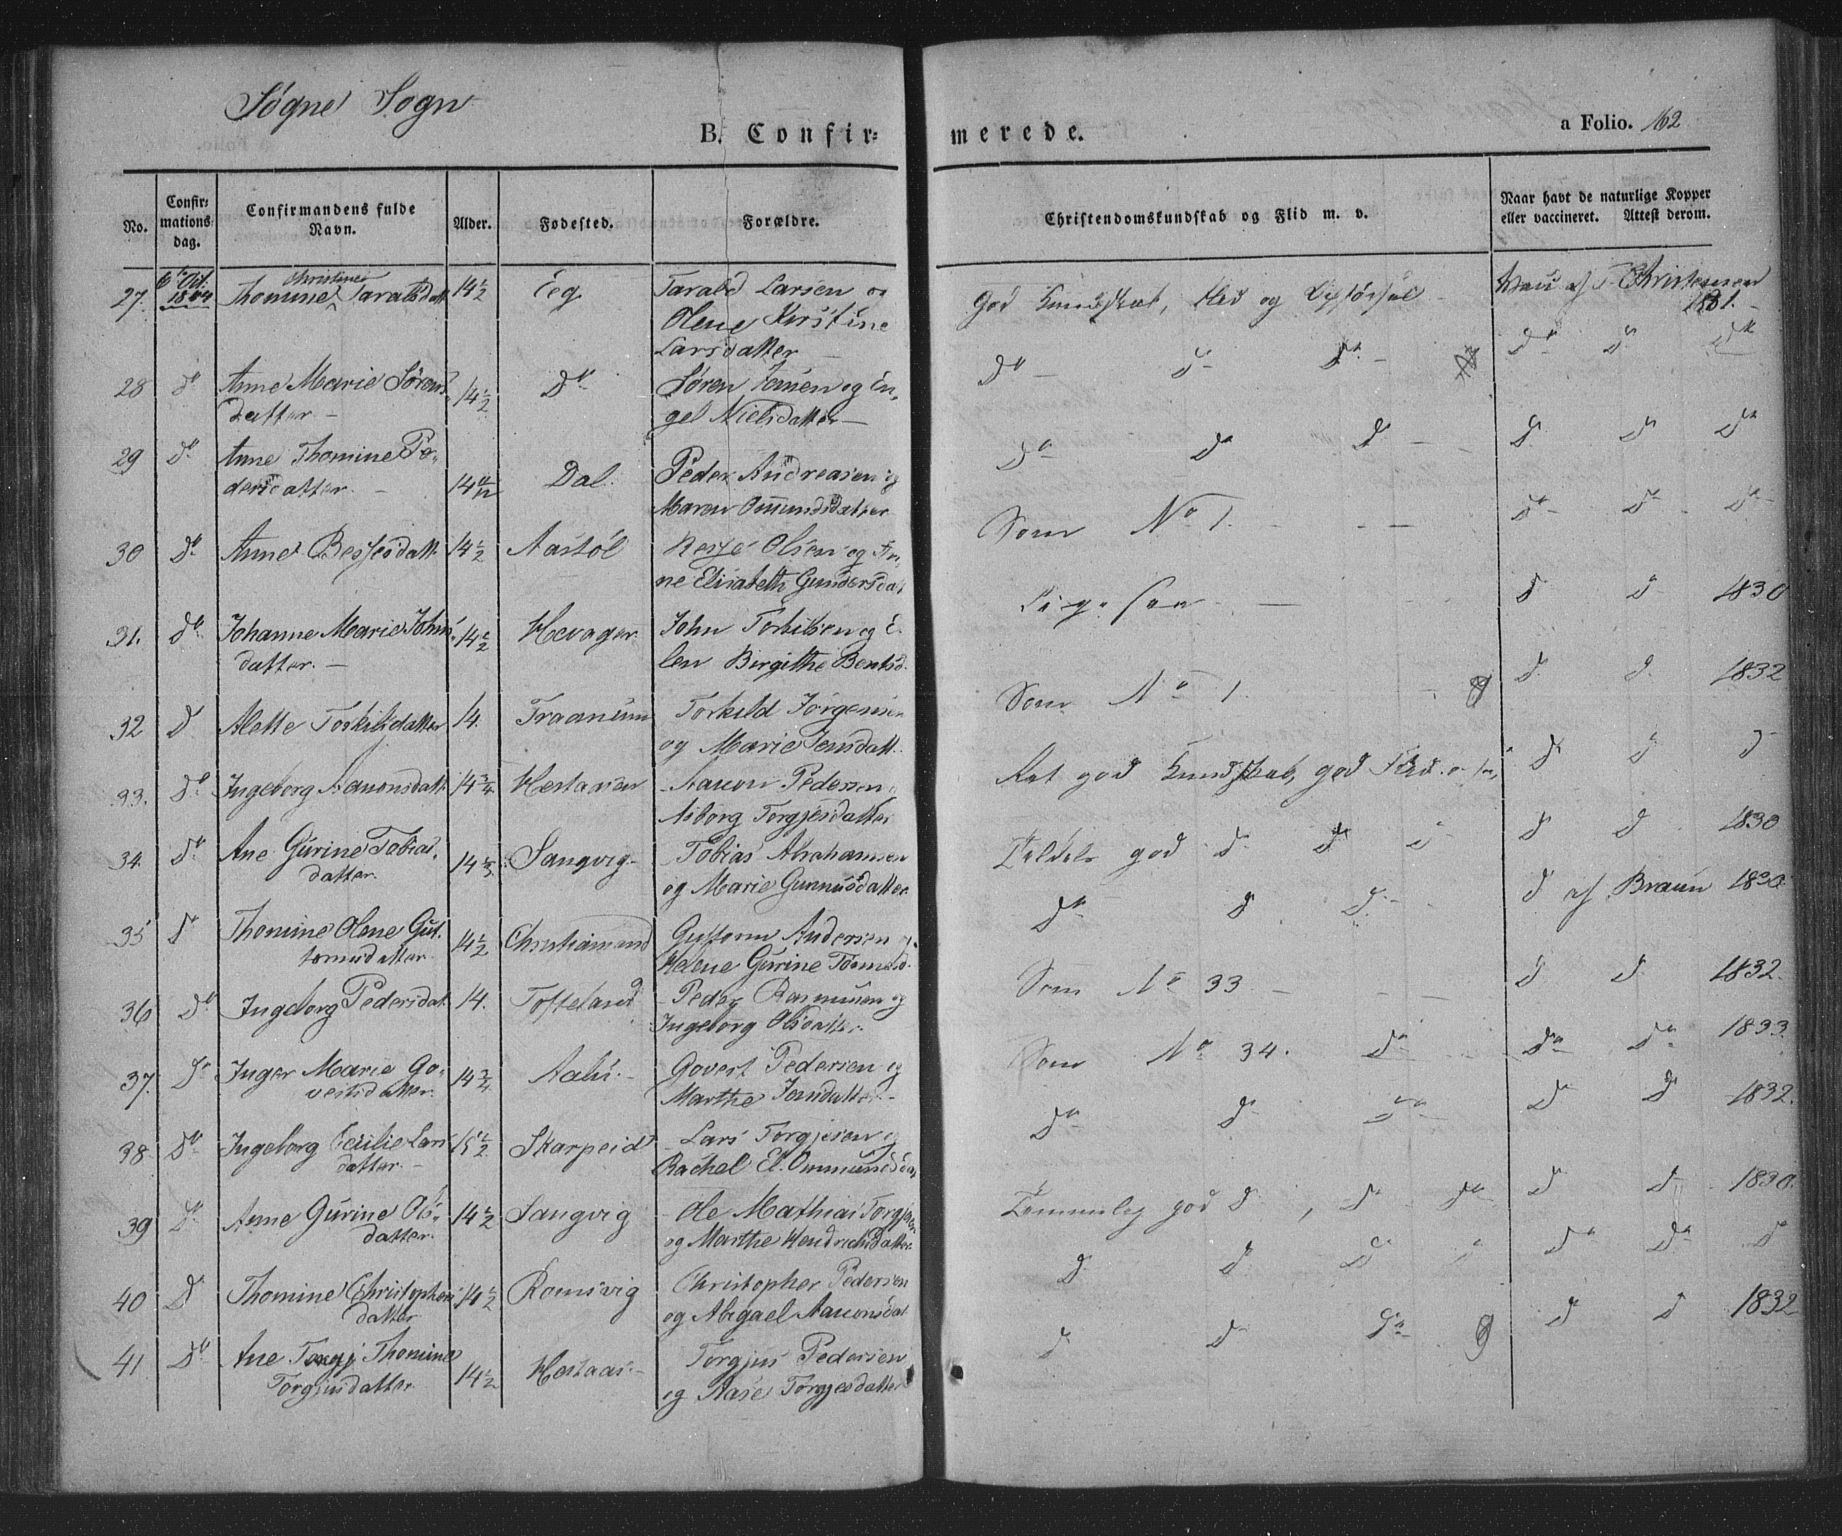 Søgne Sogn
B. Confir= merede.
a Folio. 162
No.
Confir=
mations=
dag.
Confirmandens fulde
Navn.
Alder.
Fødested.
Forældre.
Christendomskundskab og Flid m. v.
Naar havt de naturlige Kopper
eller vaccineret. Attest derom.
27. Oct. Christine
Thomine 14½ Eeg Larsen og God Kundskab, Flid og Opførsel Christensen
Olene Kirstine 1831.
Larsdatter
28 Do Anne Marie Sørens 14½ Do Søren Jensen og En- Do Do Do Do Do Do
datter gel Nielsdatter
29 Do Anne Thomine Pe- Do Do Do Do Do Do
dersdatter 14 Dal Peder Andreasen og
Maren Omundsdatter
30 Do Anne 14½ Aastøl Olsen og An- Som No 1. Do Do Do
ne Elisabeth Gundersdat
31. Do Johanne Marie Johns 14½ Høvager John Torkilsen og E- Do Do 1830
datter. len Birgithe Bentsd.
32 Do Alette Torkilsdatter 14. Traanum Torkild Jørgensen Som No 1. Do Do 1832
og Marie Jensdatt.
33. Do Ingeborg Aanonsdatt 14¾ Aanon Pedersen Ret god Kundskab, god Flid Do Do Do
Asborg Torgjesdatter
34. Do Ane Gurine Tobias- 14 Langvig Tobias Abrahamsen god Do Do Do Do Do 1830
datter. og Marie Gunnusdatter
35 Do Thomine Olene Gut- 14½ Christiansand Guttorm Andersen og Do Do Do Do af Braun 1830
tormsdatter Helene Gurine Tormodsd.
36 Do Ingeborg Pedersdat 14. Tofteland Peder Rasmusen og Som No 33 Do Do 1832.
Ingeborg Olsdatter
37. Do Inger Marie Go- 14¾ Govert Pedersen og Som No 34. Do Do Do 1833.
vertsdatter. Marthe Jensdatter
38 Do Ingeborg Cecilie Lars 15½ Skarpeid Lars Torgjesen og Do Do Do Do Do 1832.
datter. Rachel El. Ommundsdat
39 Do Anne Gurine Ols- 14½ Langvig Ole Mathias Torgjesen Temmelig god Do, Do Do Do Do 1830.
datter. og Marthe Hendrichsdatter
40 Do Thomine Christophers 14½ Romsvig Christopher Pedersen Do Do Do Do Do Do
datter og Abigael Aanonsdat
41 Do Ane Thomine 14½ Torgjus Pedersen Do Do Do Do Do 1832
Torgjusdatter og Aase Torgjesdatter